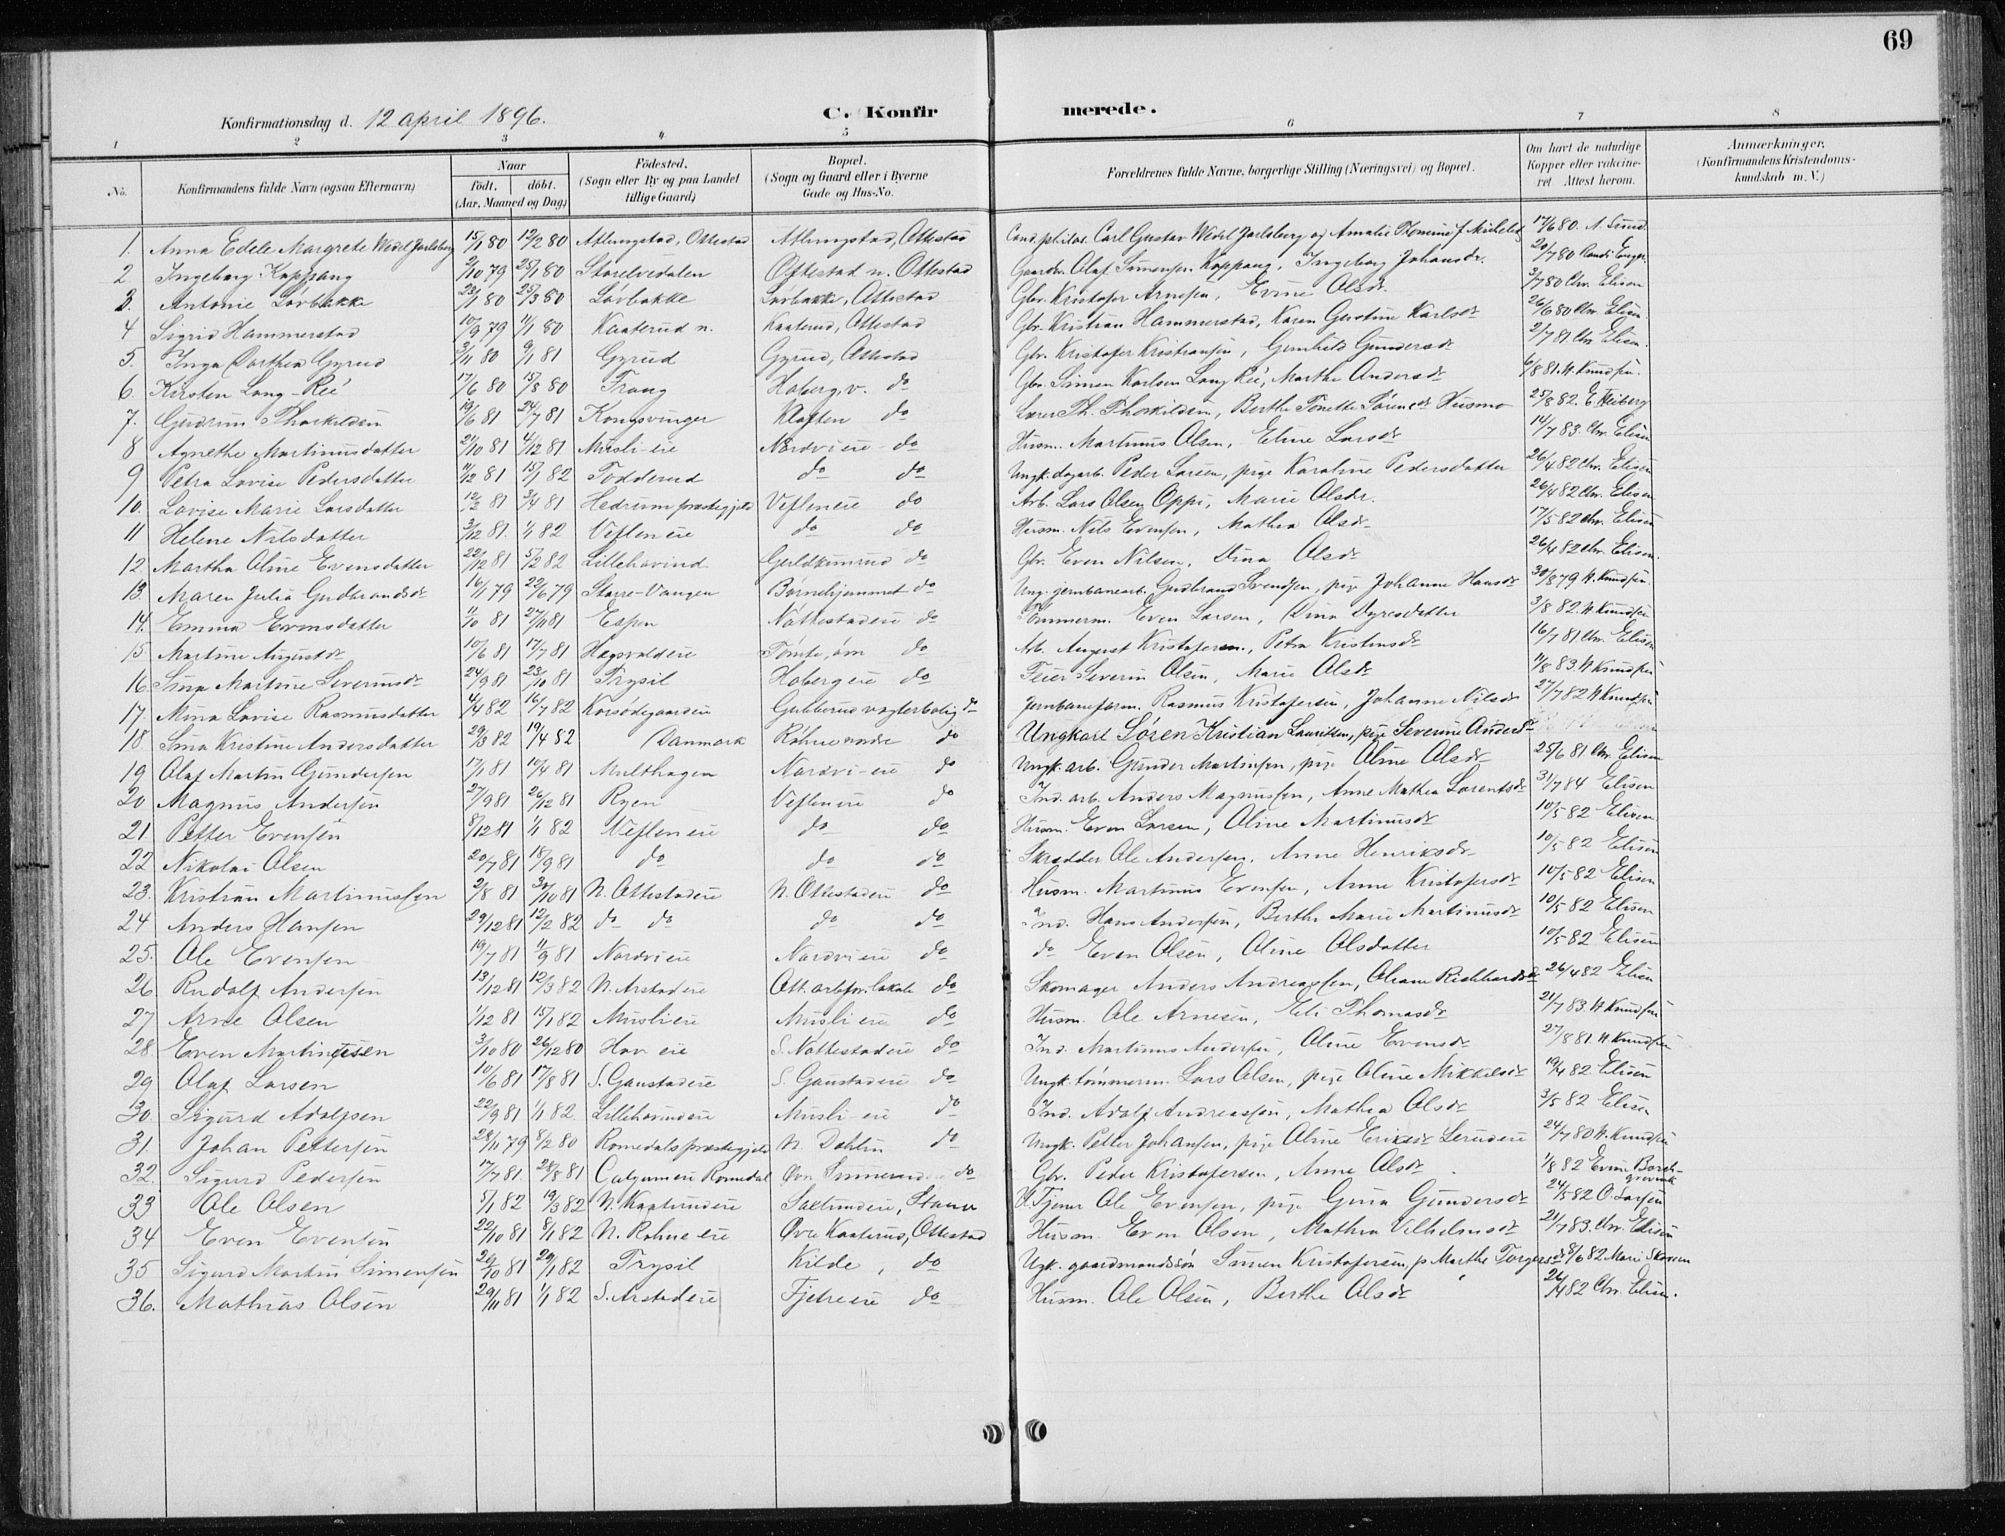 69
Konfirmationsdag d. 12 april 1896. C. Konfir merede.
1 2 3 4 5 6 7 8
No. Konfirmandens fulde Navn (ogsaa Efternavn) Naar födt. döbt. (Aar, Maaned og Dag) Födested. (Sogn eller By og paa Landet tillige Gaard) Bopæl. (Sogn og Gaard eller i Byerne Gade og Hus-No. Forældrenes fulde Navne, borgerlige Stilling (Næringsvei) og Bopæl. Om havt de naturlige Kopper eller vakcineret. Attest herom. Anmærkninger. (Konfirmandens Kristendomskundskab m. V.)
1. Anna Edele Margrete Wedel Jarlsberg 15/1 80 12/2 80 Atlungstad, Ottestad Atlungstad, Ottestad Cand. philos. Carl Gustav Wedel Jarlsberg og Amalie 17/6 80. N. Lund
2 Ingeborg Koppang 2/10 79 25/1 80 Storelvedalen Oftestad n. Ottestad Gaardbr. Olaf Simensen Koppang, Ingeborg Johansdr. 20/7 80
3. Antonie Lövbakke 22/1 80 25/3 80 Lövbakke Lövbakke, Ottestad Gbr. Kristofer Arnesen, Evine Olsdr 3/7 80 Chr. Elisen
4 Sigrid Hammerstad 10/9 79 11/1 80 Kaaterud n. Kaaterud, Ottestad Gbr. Kristian Hammerstad, Karen Gustine Karlsdr 26/6 80 Chr. Elisen
5. Inga Dorthea Gyrud 3/11 80 9/1 81 Gyrud Gyrud, Ottestad Gbr. Kristofer Kristiansen, Gunhild Gundersdr 2/7 81 Chr. Elisen.
6. Kirsten Lang-Reé 17/6 80 15/8 80 Frang Hoberg v. do Gbr. Simen Karlsen Lang Reé, Marthe Andersdr 6/8 81. H. Knudsen.
7. Gudrun Thorkildsen 19/6 81 24/7 81 Kongsvinger Kloften do Lærer Th. Thorkildsen, Berthe Tonette Sörensdr 25/8 82. E. Heiberg
8 Agnethe Martinusdatter 21/10 81 4/12 81 Musli eie Nordvi eie do Husm. Martinus Olsen, Eline Larsdr 14/7 83. Chr. Elisen
9 Petra Lovise Pedersdatter 11/12 81 15/1 82 Todderud do do Ungk. dagarb. Peder Larsen, pige Karoline Pedersdatter 26/4 82 Chr. Elisen
10. Lovise Marie Larsdatter 12/2 81 3/4 81 Hedrum præstegjeld Veflen eie do Arb. Lars Olsen Oppi, Marie Olsdr. 26/4 82 Chr. Elisen
11 Helene Nilsdatter 3/12 81. 1/1 82 Veflen eie do do Husm. Nils Evensen, Mathea Olsdr 17/5 82 Chr. Elisen
12. Martha Oline Evensdatter 22/12 81 5/2 82 Lillehovind do Gbr. Even Nilsen, Dina Olsdr 26/4 82 Chr. Elisen.
13. Maren Julia Gudbrandsdr 16/1 79 22/6 79 Starre-Vangen Börnehjemmet do Ung. jernbanearb. Gudbrand Svendsen, pige Johanne Hansdr 30/8 79 H. Knudsen.
14. Emma Evensdatter 81 27/11 81 Espen Nöttestad eie do Tömmerm. Even Larsen, Dina Dyresdatter 3/8 82. H. Knudsen
15 Martine Augustdr 10/6 81 17/7 81 Hagsvold eie do Arb. August Kristofersen., Petra Kristinsdr 16/7 81 Chr. Elisen
16 Sina Martine Severinsdr 24/9 81 23/10 81 Trysil Hoberg eie do Feier Severin Olsen, Marie Olsdr 11/8 83. H Knudsen
17. Mina Lovise Rasmusdatter 4/4 82 16/7 82 Korsödegaarden Gubberud vogterbolig do Jernbaneform. Rasmus Kristofersen, Johanne Nilsdr 27/7 82 H. Knudsen
18. Sina Kristine Andersdatter 29/3 82 19/4 82 Danmark Röhne nordre do Ungkarl Sören Kristian Lauritsen, pige Severine Andersdr
19 Olaf Martin Gundersen 17/1 81 10/4 81 Multhagen Nordvi-eie do Ungk. arb. Gunder Martinsen, pige Oline Olsdr 25/6 81 Chr. Elisen
20 Magnus Andersen 27/9 81 26/12 81 Ryen Veflen eie do Ind. arb. Anders Magnussen, Anne Mathea Lorentsdr 31/7 84 Elisen
21. Petter Evensen 8/12 81 1/1 82 Veflen eie do do Husm. Even Larsen, Oline Martinusdr 10/5 82 Elisen
22 Nikolai Olsen 20/7 81 18/9 81 do do do Skrædder Ole Andersen, Anne Henriksdr 10/5 82 Elisen
23. Kristian Martinussen 2/8 81 30/10 81 N. Ottestad eie N. Ottestad eie do Husm. Martinus Evensen, Anne Kristofersdr 10/5 82 Elisen
24 Anders Hansen 29/12 81 12/2 82 do do do do Ind. Hans Andersen, Berthe Marie Martinusdr 10/5 82 Elisen
25. Ole Evensen 19/7 81 11/9 81 Nordvi eie Nordvi eie do do Even Olsen, Oline Olsdatter 10/5 82 Elisen
26 Rudolf Andersen 13/12 81 12/3 82 N. Arstad eie Ott. arbfor. lokale do Skomager Anders Andreassen, Oleane Rickhardsdr 26/4 82 Elisen
27 Arne Olsen 1/12 81 15/1 82 Musli eie Musli eie do Husm. Ole Arnesen, Eli Thomasdr 21/7 83. H Knudsen
28. Even Martinusen 3/10 80 26/12 80 Hov eie S. Nöttestad eie do Ind. Martinus Andersen, Oline Evensdr 27/8 81. H Knudsen
29 Olaf Larsen 10/6 81 17/8 81 S. Gaustad eie S. Gaustad eie do Ungk. tömmerm. Lars Olsen, pige Oline Mikkelsdr 19/4 82 Elisen
30. Sigurd Adolfsen 22/9 81 1/1 82 Lillehovind eie Musli-eie do Ind. Adolf Andreassen, Mathea Olsdr 3/5 82 Elisen
31. Johan Pettersen 28/11 79 8/2 80 Romedals præstegjeld N. Dahlin do Ungk. Petter Johansen, pige Oline Eriksdr 24/7 80 H. Knudsen
32. Sigurd Pedersen 17/7 81. 28/8 81 Romedal Øvre do Gbr. Peder Kristofersen, Anne Olsdr 1/8 82
33 Ole Olsen 5/1 82 19/3 82 N. Kaaterud eie Stange Tjener Ole Evensen, pige Gina Gundersdr 24/5 82 O. Larsen
34 Even Evensen 22/10 81 8/1 82 N. Röhne eie Øvre Kaaterud, Ottestad Husm. Even Olsen, Mathea Vilhelmsdr 21/7 83. Chr. Elisen
35 Sigurd Martin Simensen 20/10 81 29/1 82 Trysil Kilde, do Ugk. gaardmandssön Simen Kristofersen, p Marthe Torgersdr 8/6 82
36. Mathias Olsen 29/11 81 1/1 82 S. Arstad eie Fjetre eie do Husm. Ole Olsen, Berthe Olsdr 26/4 82 Chr. Elisen.